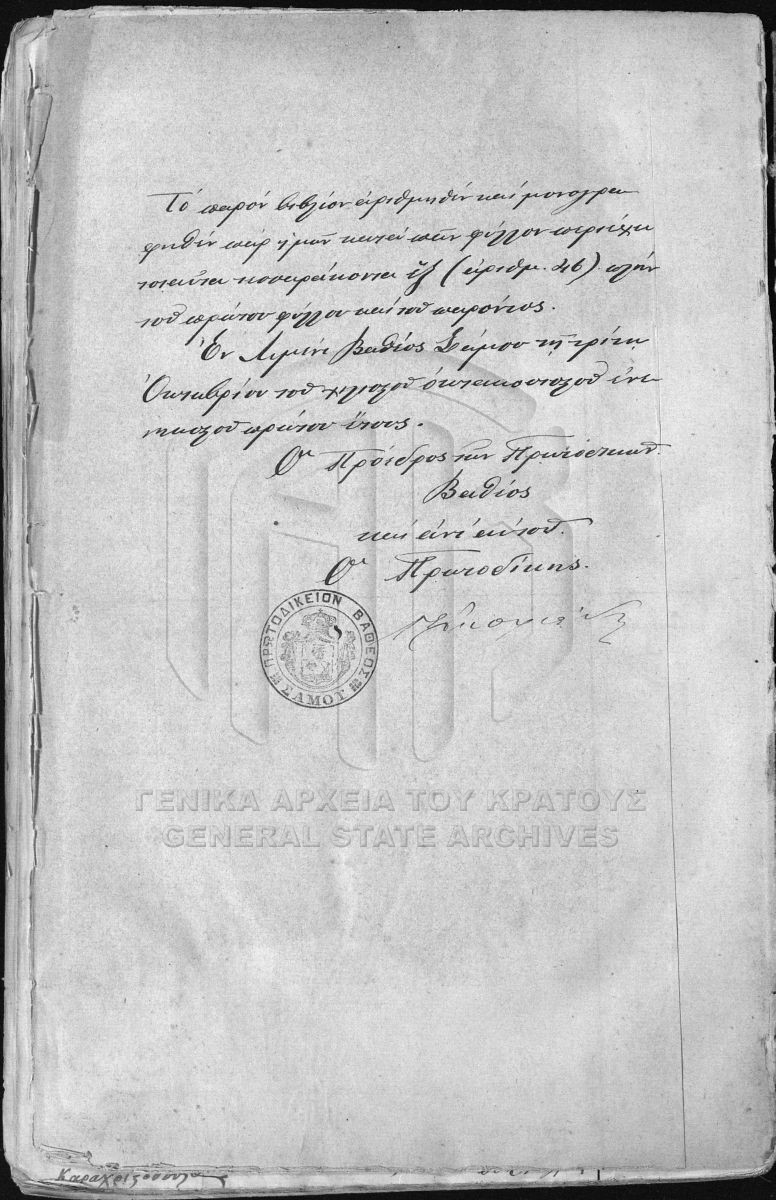 Τό παρόν βιβλίον ἀριθμηθέν καί μονογρα
φηθέν παρ' ἡμῶν κατά πᾶν φύλλον περιέχει
τοιαῦτα τεσσαράκοντα ἕξ (ἀριθμ. 46) πλήν
τοῦ πρώτου φύλλου καί τοῦ παρόντος.
Ἐν Λιμένι Βαθέος Σάμου τῇ τρίτῃ
Ὀκτωβρίου τοῦ χιλιοστοῦ ὀκτακοσιοστοῦ ἐνε
νηκοστοῦ πρώτου ἔτους.
Ὁ Πρόεδρος τῶν Πρωτοδικῶν
Βαθέος
καί ἀντ' αὐτοῦ
Ὁ Πρωτοδίκης.
ΠΡΩΤΟΔΙΚΕΙΟΝ ΒΑΘΕΟΣ
ΣΑΜΟΥ
ΓΕΝΙΚΑ ΑΡΧΕΙΑ ΤΟΥ ΚΡΑΤΟΥΣ
GENERAL STATE ARCHIVES